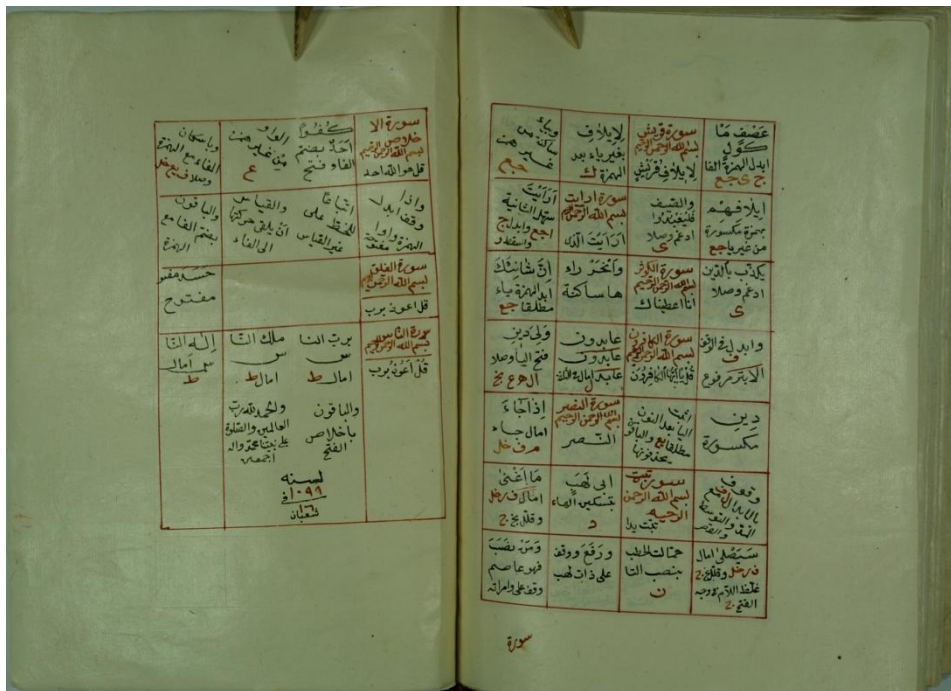 عَصْفٍ مَا
كُولٍ
ابدل الهمزة الفا
ج ى جع
سورة قريش
بسم الله الرحمن الرحيم
لايلاف قريش
لإيلاف
بغير ياء بعد
الهمزة ك
وبياء
ساكنة من
غير همز
جع
إيلافهم
بهمزة مكسورة
من غير ياء جع
والصيف
فليعبدوا
ادغم وصلا
ى
سورة ارايت
بسم الله الرحمن الرحيم
ارايت الذى
ارايت
سهل الثانية
يكذب بالدين
ادغم وصلا
ى
سورة الكوثر
بسم الله الرحمن الرحيم
انا اعطيناك
وانحر راء
ها ساكنة
ان شانئك
ابدل الهمزة ياء
مطلقا جع
وابدل فى الوقف
ف
الابتر مرفوع
سورة الكافرون
بسم الله الرحمن الرحيم
قل يا ايها الكافرون
عابدون
عابدون
ولى دين
فتح اليا وصلا
دين
مكسورة
اثبت
اليا بعد النون
مطلقا يع والباقون
يحذفونها
سورة النصر
بسم الله الرحمن الرحيم
النصر
اذا جاء
امال جاء
وقوف
المد والتوسط
والقصر
سورة تبت
بسم الله الرحمن
الرحيم
تبت يدا
ابى لهب
بتسكين الهاء
د
ما اغنى
امال
سيصلى امال
غلظ اللام
الفتح
حمالت الحطب
بنصب التا
ن
ورفع ووقف
على ذات لهب
ومن نصب
فهو عاصم
وقف على وامراته
سورة
سورة الا
خلاص
بسم الله الرحمن الرحيم
قل هو الله احد
كفوا
احد بضم
الفاء وفتح
الواو
من غير همز
ع
وباسكان
الفاء مع الهمزة
واذا
وقف ابدل
الهمزة واوا
مفتوحة
اتباعا
للخط على
غير القياس
والقياس
ان يلقى حركتها
الى الفاء
والباقون
بضم الفا مع
الهمزة
سورة الفلق
بسم الله الرحمن الرحيم
قل اعوذ برب
حسد
مفتوح
سورة الناس
بسم الله الرحمن الرحيم
قل اعوذ برب
برب النا
س
امال ط
ملك النا
س
امال ط
اله النا
س امال
ط
والباقون
باخلاص
الفتح
والحمد لله رب
العالمين والصلوة
على نبينا محمد واله
اجمعين
لسنه
١٠٩٩ فى
١٦
شعبان